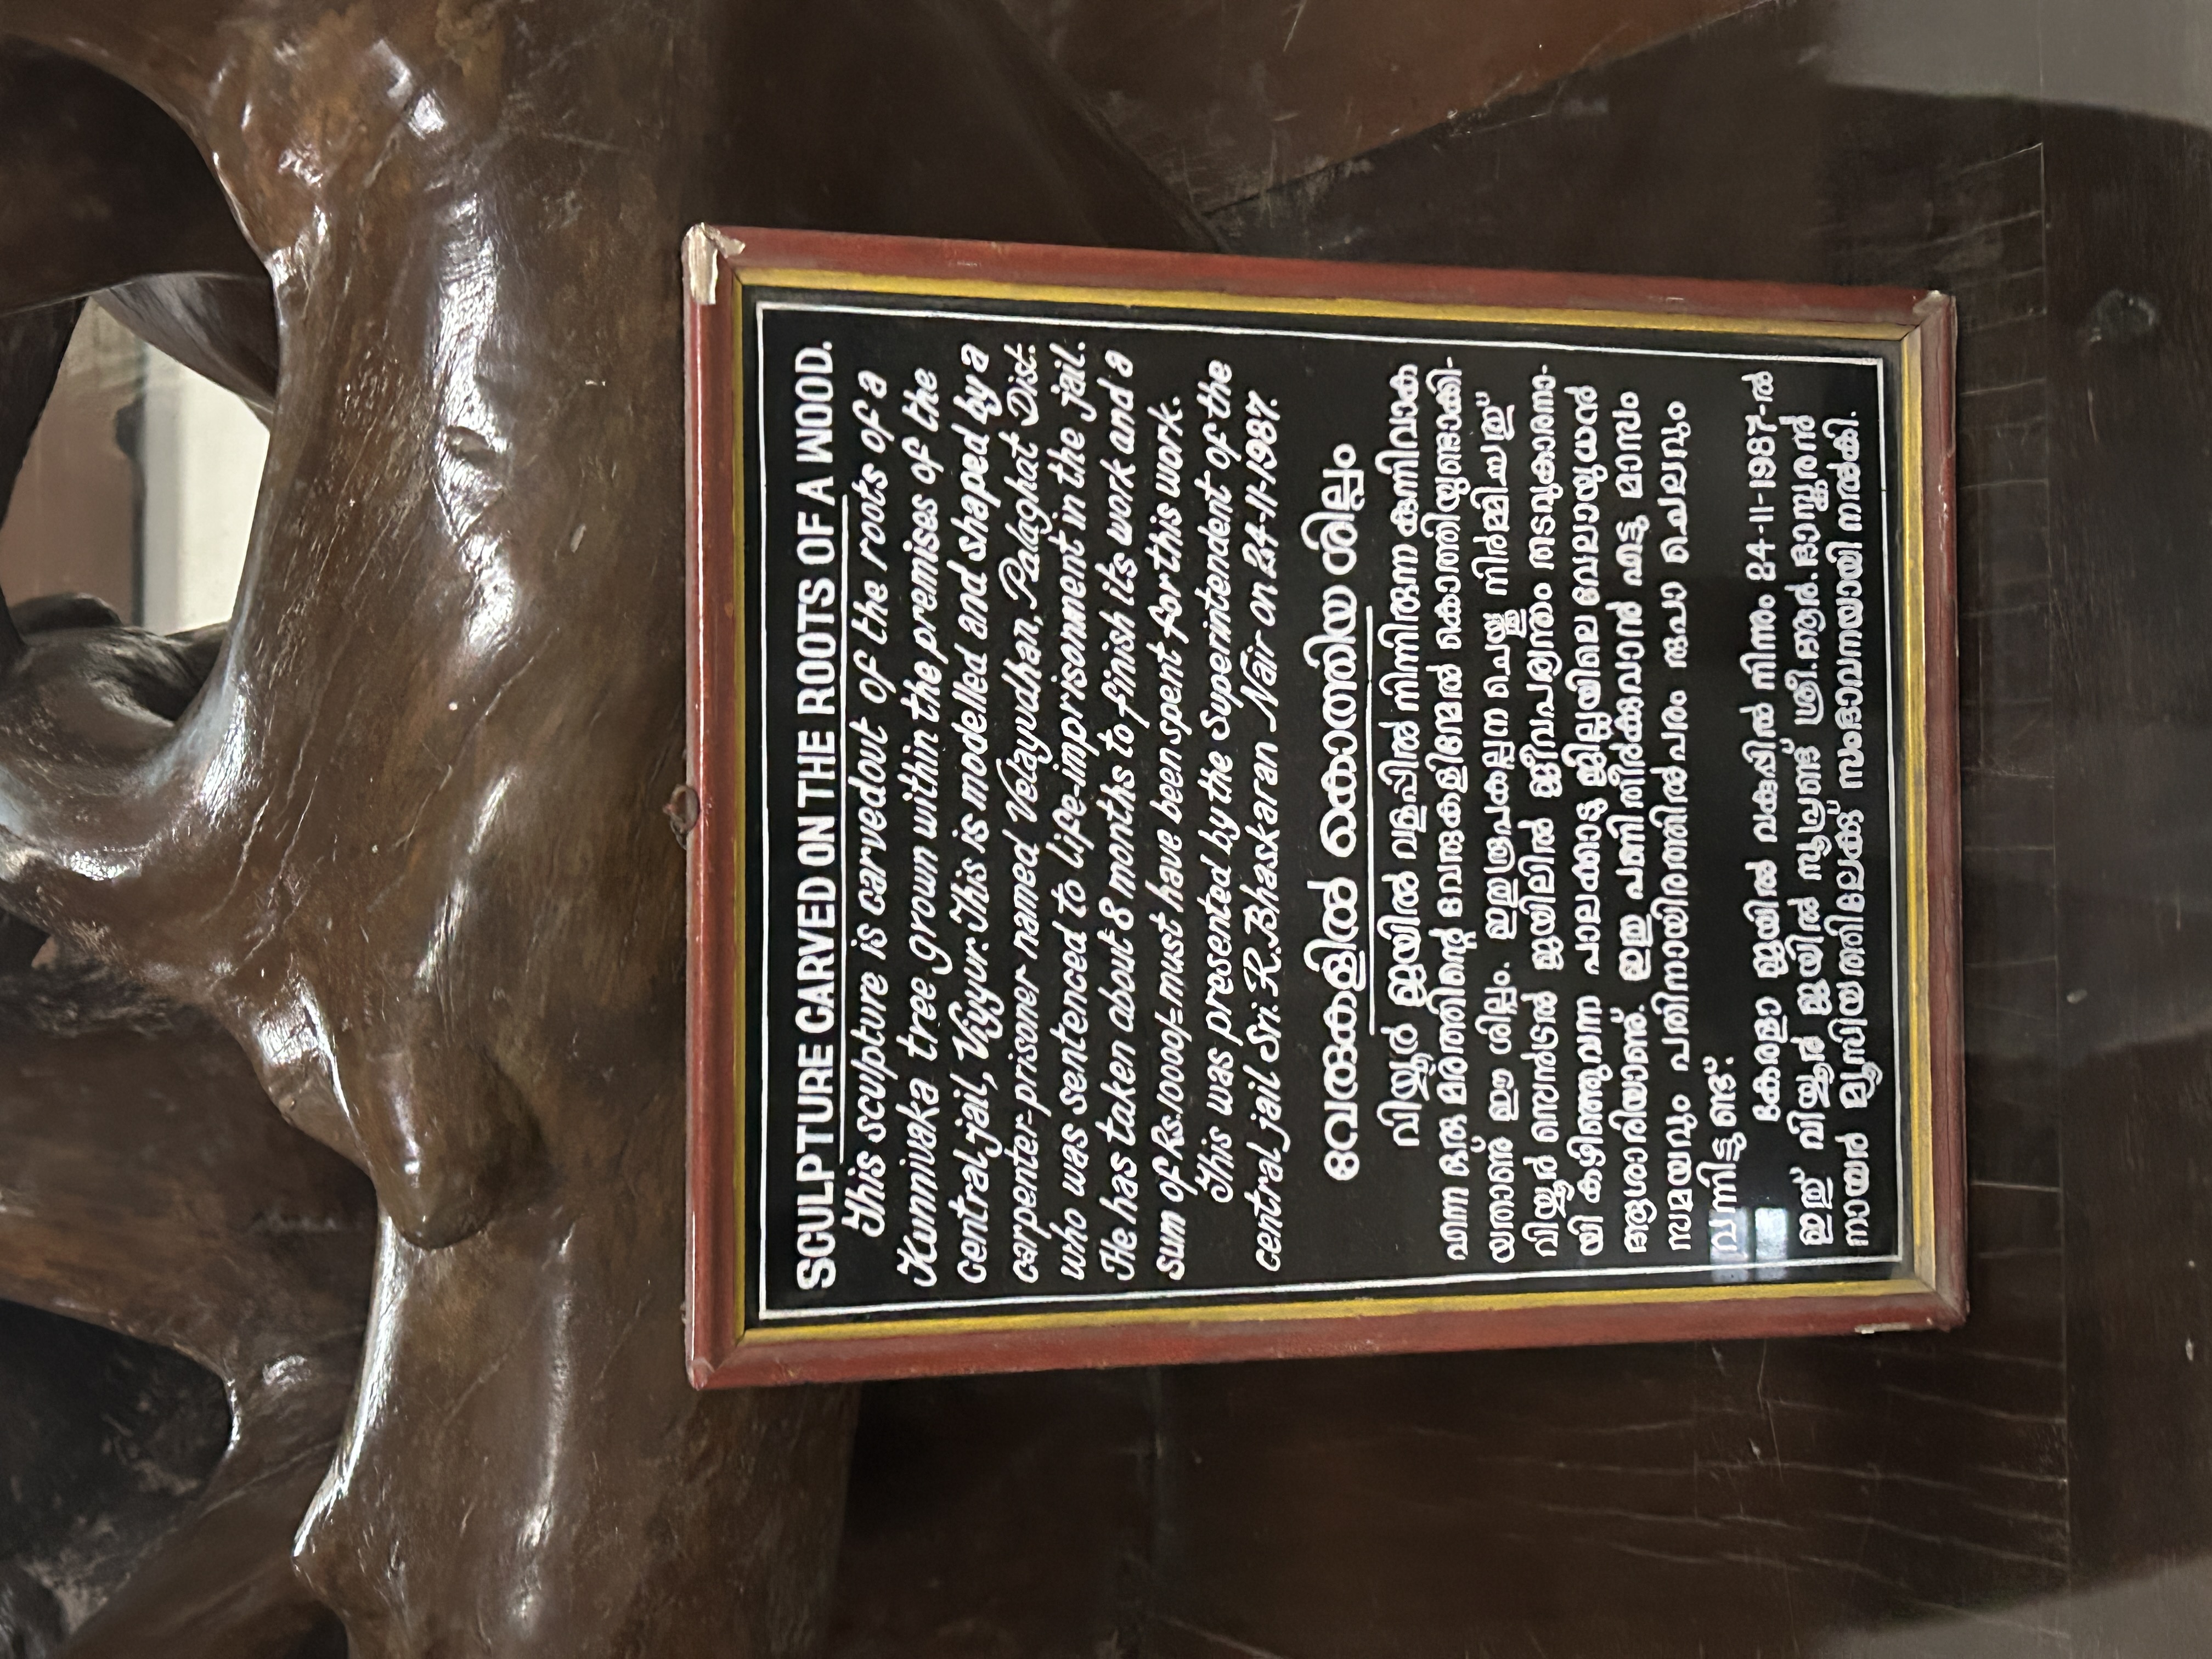 SCULPTURE CARVED ON THE ROOTS OF A WOOD.
This sculpture is carvedout of the roots of a
Kunnivaka tree grown within the premises of the
central jail, Viyyur. This is modelled and shaped by a
carpenter-prisoner named Velayudhan, Palaghat Dist.
who was sentenced to life-imprisonment in the jail.
He has taken about 8 months to finish its work and a
sum of Rs.10000/= must have been spent for this work.
This was presented by the Superintendent of the
central jail Sri. R. Bhaskaran Nair on 24-11-1987.
വേരുകളിൽ കൊത്തിയ ശില്പം
വിയ്യൂർ ജയിൽ വളപ്പിൽ നിന്നിരുന്ന കുന്നിവാക
എന്ന ഒരു മരത്തിന്റെ വേരുകളിന്മേൽ കൊത്തിയുണ്ടാക്കി-
യതാണു് ഈ ശില്പം. ഇതു രൂപകല്പന ചെയ്തു നിർമ്മിച്ചതു്
വിയ്യൂർ സെൻട്രൽ ജയിലിൽ ജീവപര്യന്തം തടവുകാരനാ-
യി കഴിഞ്ഞുവന്ന പാലക്കാടു ജില്ലയിലെ വേലായുധൻ
ആശാരിയാണു്. ഇതു പണി തീർക്കുവാൻ എട്ടു മാസം
സമയവും പതിനായിരത്തിൽപരം രുപാ ചെലവും
വന്നിട്ടുണ്ട്.
കേരളാ ജയിൽ വകുപ്പിൽ നിന്നും 24-11-1987-ൽ
ഇതു് വിയ്യൂർ ജയിൽ സൂപ്രണ്ട് ശ്രീ. ആർ. ഭാസ്കരൻ
നായർ മ്യൂസിയത്തിലേക്കു് സംഭാവനയായി നൽകി.